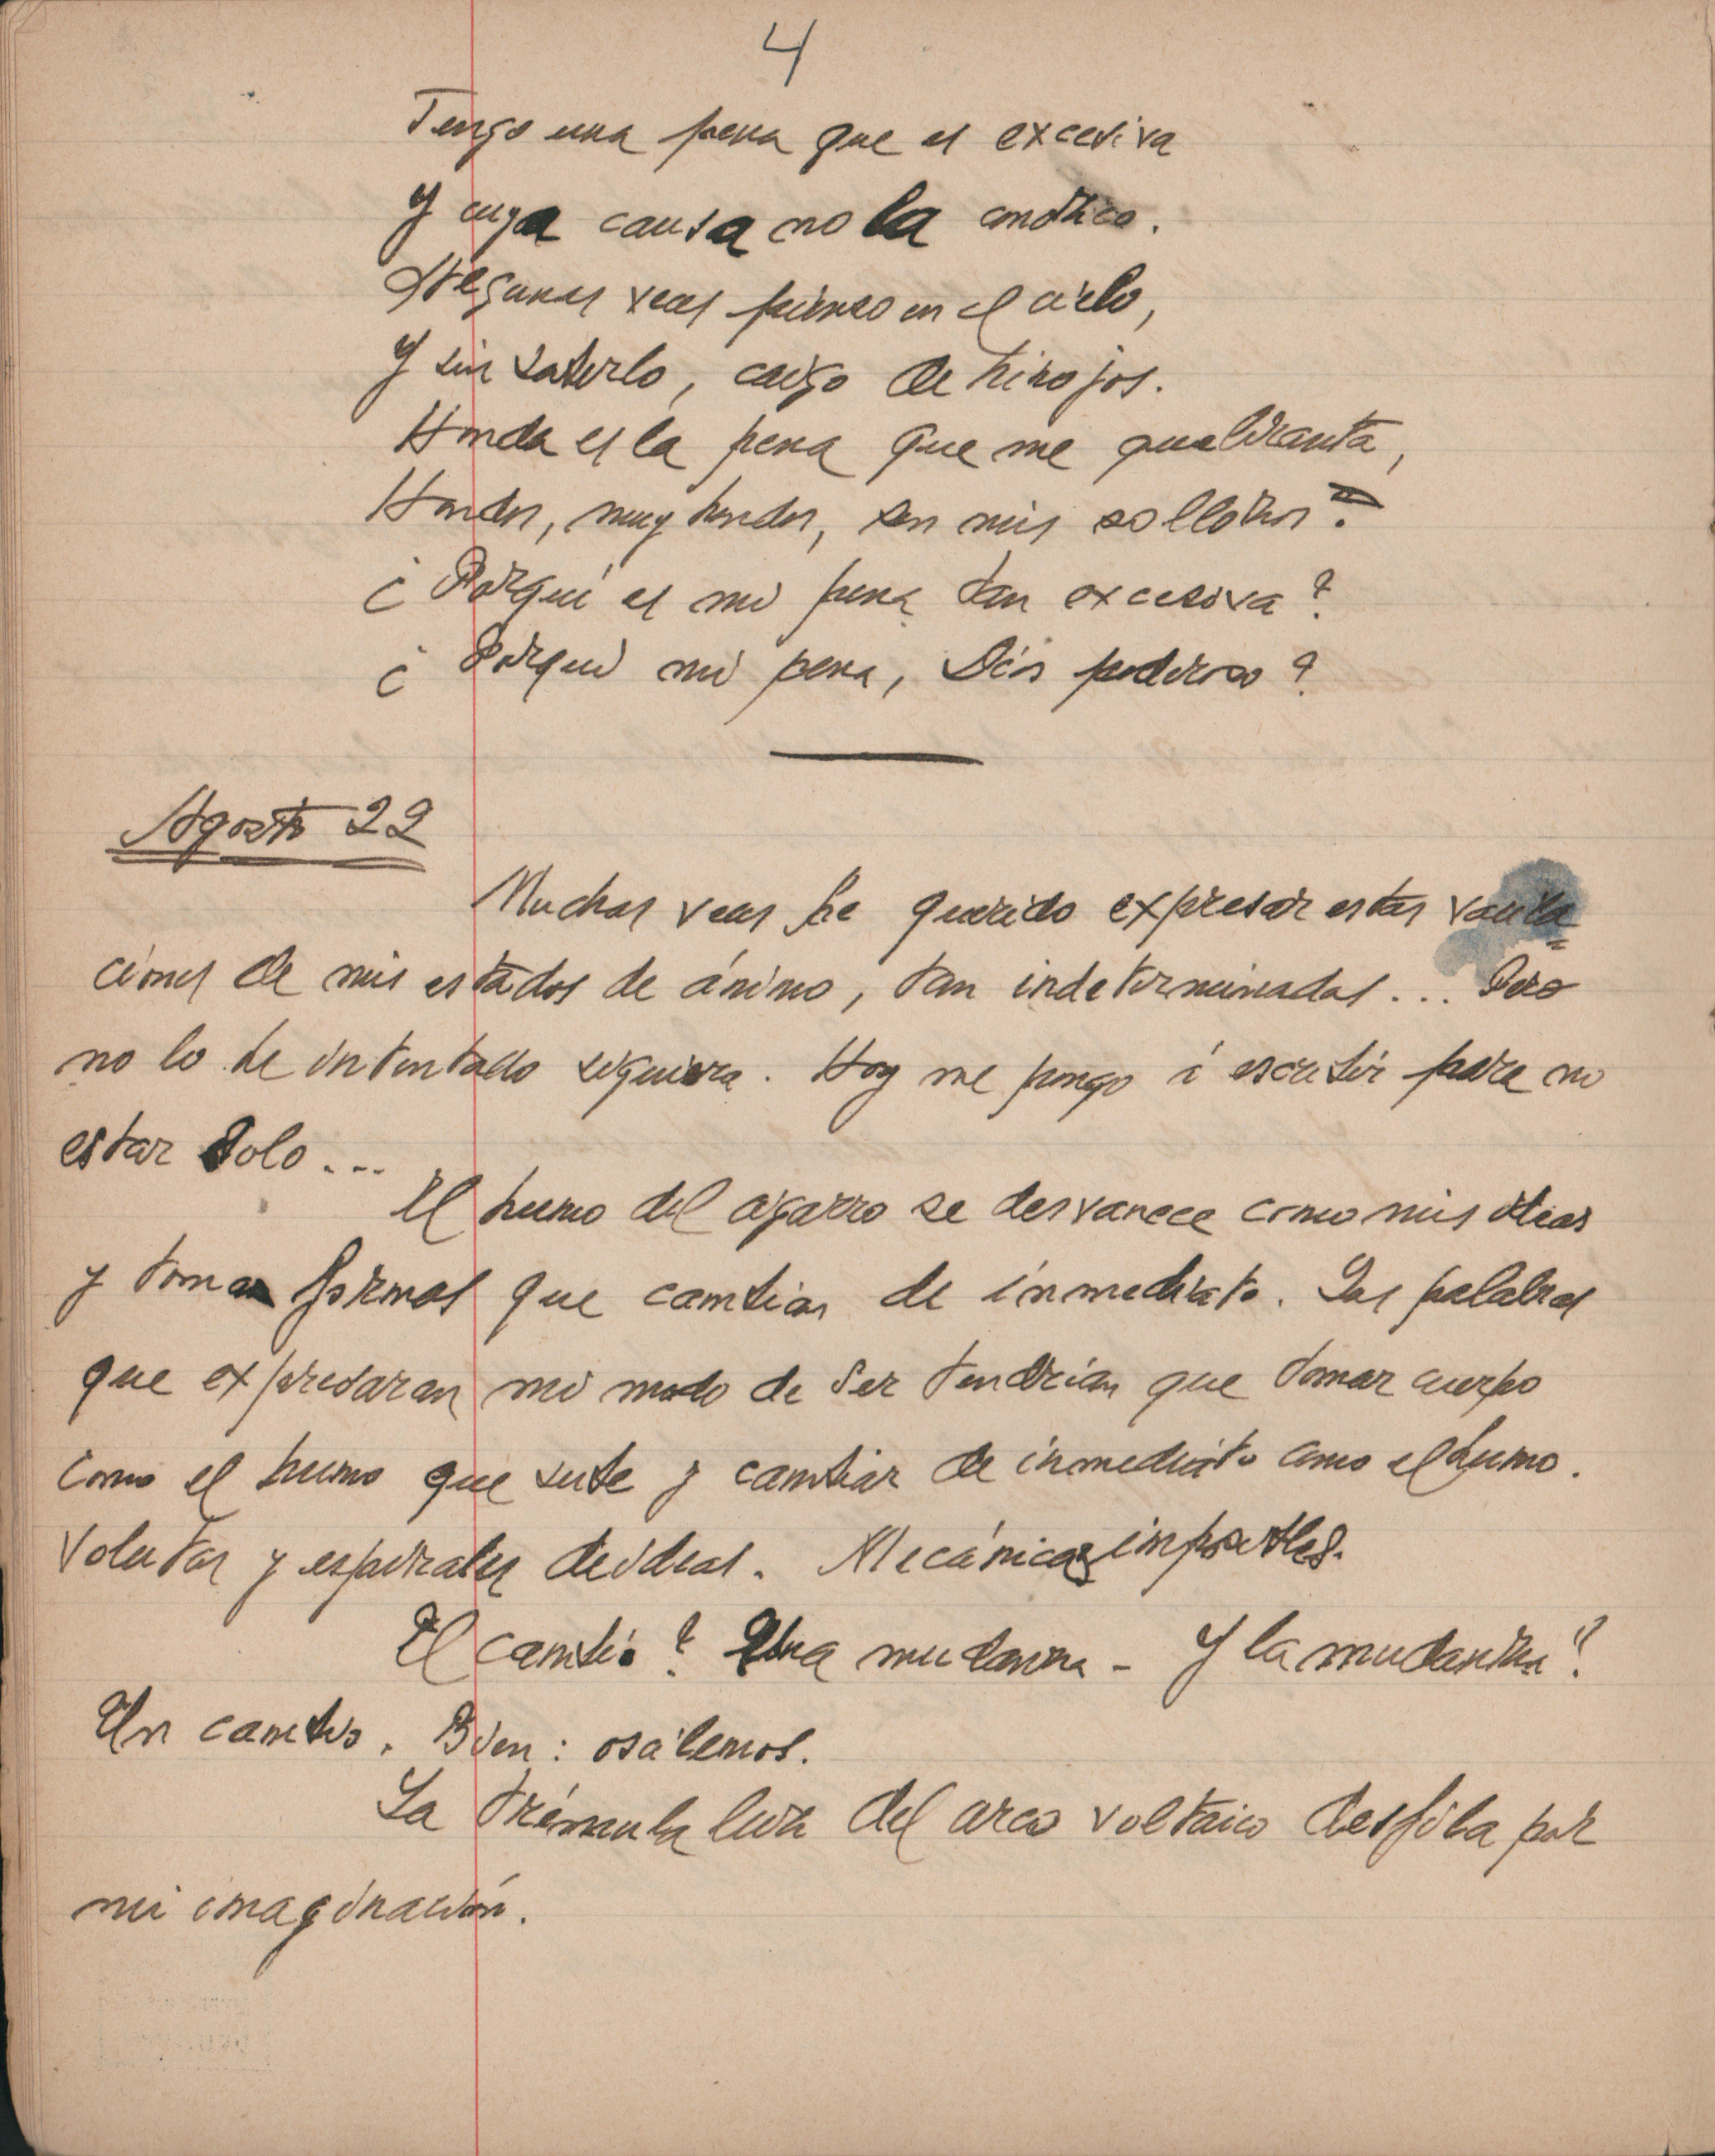 4
Tengo una pena que es excesiva
Y cuya causa no la conozco.
Algunas veces pienso en el cielo,
Y sin saberlo, caigo de hinojos.
Honda es la pena que me quebranta,
Hondos, muy hondos, son mis sollozos.
¿Porqué es mi pena tan excesiva?
¿Porqué mi pena, Dios poderoso?
Agosto 22
Muchas veces he querido expresar estas vacila=
ciones de mis estados de ánimo, tan indeterminadas... Pero
no lo he intentado siquiera. Hoy me pongo á escribir para no
estar solo....
El humo del cigarro se desvanece como mis ideas
y toma formas que cambian de inmediato. Las palabras
que expresaran mi modo de ser tendrían que tomar cuerpo
como el humo que sube y cambiar de inmediato como el humo.
Volutas y espirales de ideas. Mecánicas imposibles.
El cambio? Una mudanza - Y la mudanza?
Un cambio. Bien: osálemos.
La trémula luz del arco voltaico desfila por
mi imaginación.